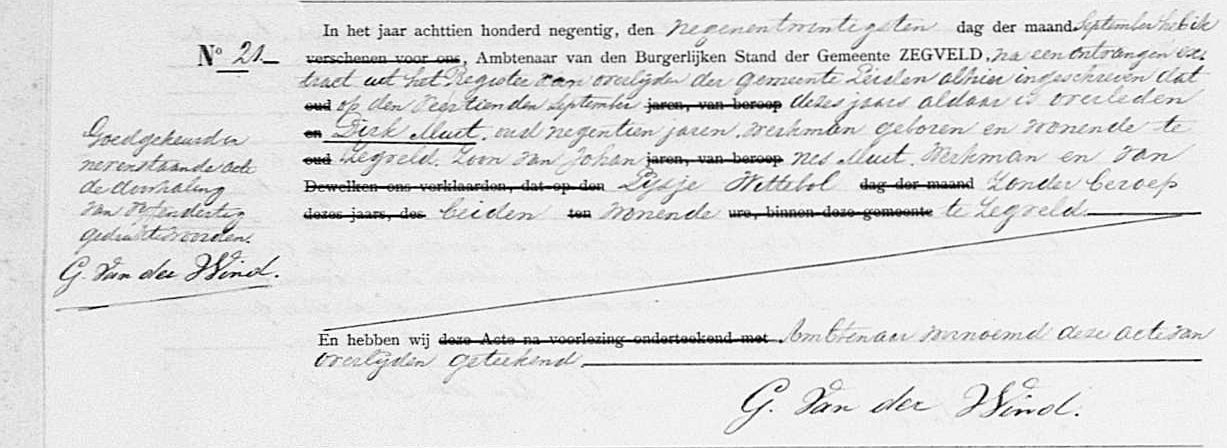 In het jaar achttien honderd negentig, den negenentwintigsten dag der maand September heb ik
No. 21 verschenen voor ons, Ambtenaar van den Burgerlijken Stand der Gemeente ZEGVELD, na een ontvangen ex-
tract uit het Register van overlijden der gemeente Leiden alhier ingeschreven dat
oud op den veertienden September jaren, van beroep dezes jaars aldaar is overleden
en Dirk Muit, oud negentien jaren, werkman geboren en wonende te
oud Zegveld. Zoon van Johan jaren, van beroep nes Muit, Werkman en van
Dewelken ons verklaarden, dat op den Lijsje Wittebol dag der maand Zonder beroep
dezes jaars, des beiden ten wonende ure, binnen deze gemeente te Zegveld.
Goedgekeurd in
nevenstaande acte
de doorhaling
van
gedrukte woorden.
G. Van der Wind.
En hebben wij deze Acte na voorlezing onderteekend met Ambtenaar voornoemd deze acte van
overlijden geteekend
G. Van der Wind.